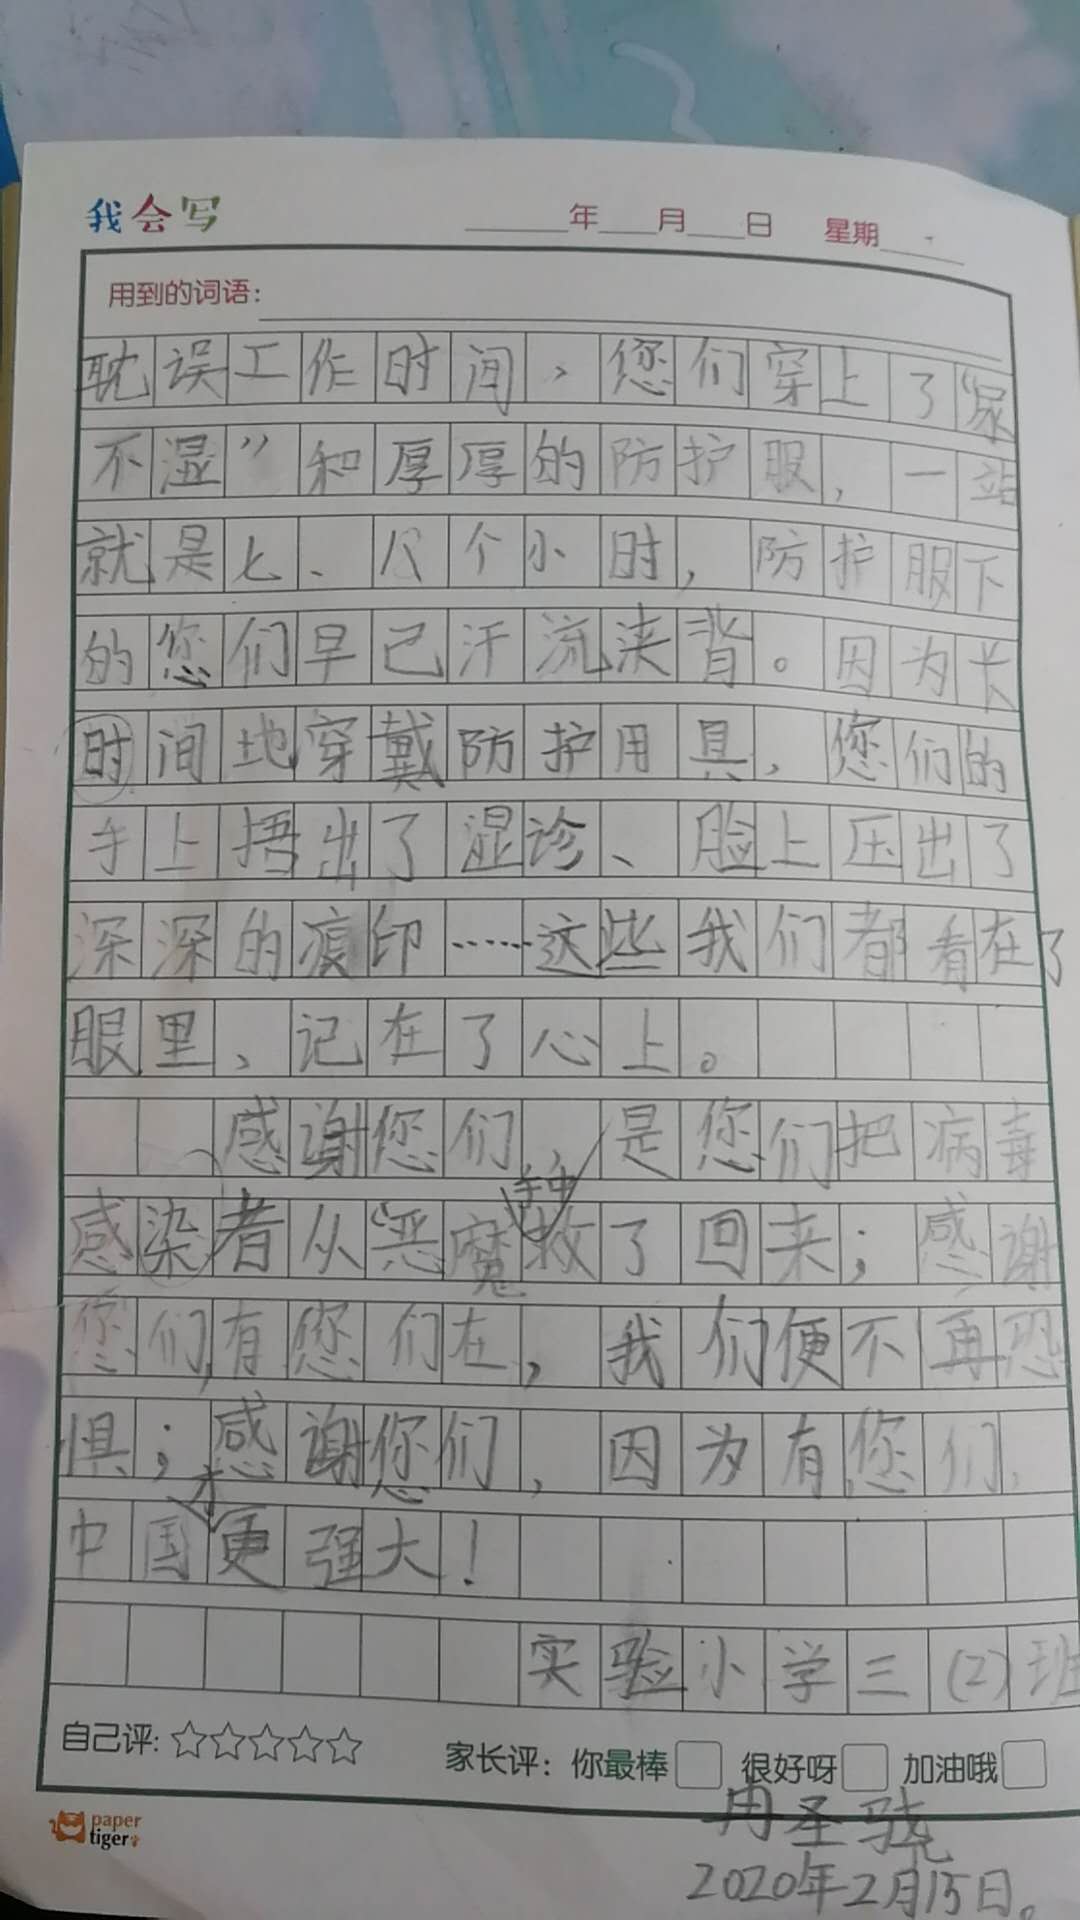 我会写 ____年___月___日 星期____
用到的词语：
耽误工作时间，您们穿上了“尿
不湿”和厚厚的防护服，一站
就是七、八个小时，防护服下
的您们早己汗流浃背。因为长
时间地穿戴防护用具，您们的
手上捂出了湿诊、脸上压出了
深深的痕印……这些我们都看在了
眼里、记在了心上。
感谢您们，是您们把病毒
感染者从“恶魔”手中救了回来；感谢
您们，有您们在，我们便不再恐
惧；感谢您们，因为有您们，
中国才更强大！
实验小学三（2）班
自己评：☆☆☆☆☆ 家长评：你最棒□ 很好呀□ 加油哦□
冉圣骁
paper
tiger
2020年2月15日。